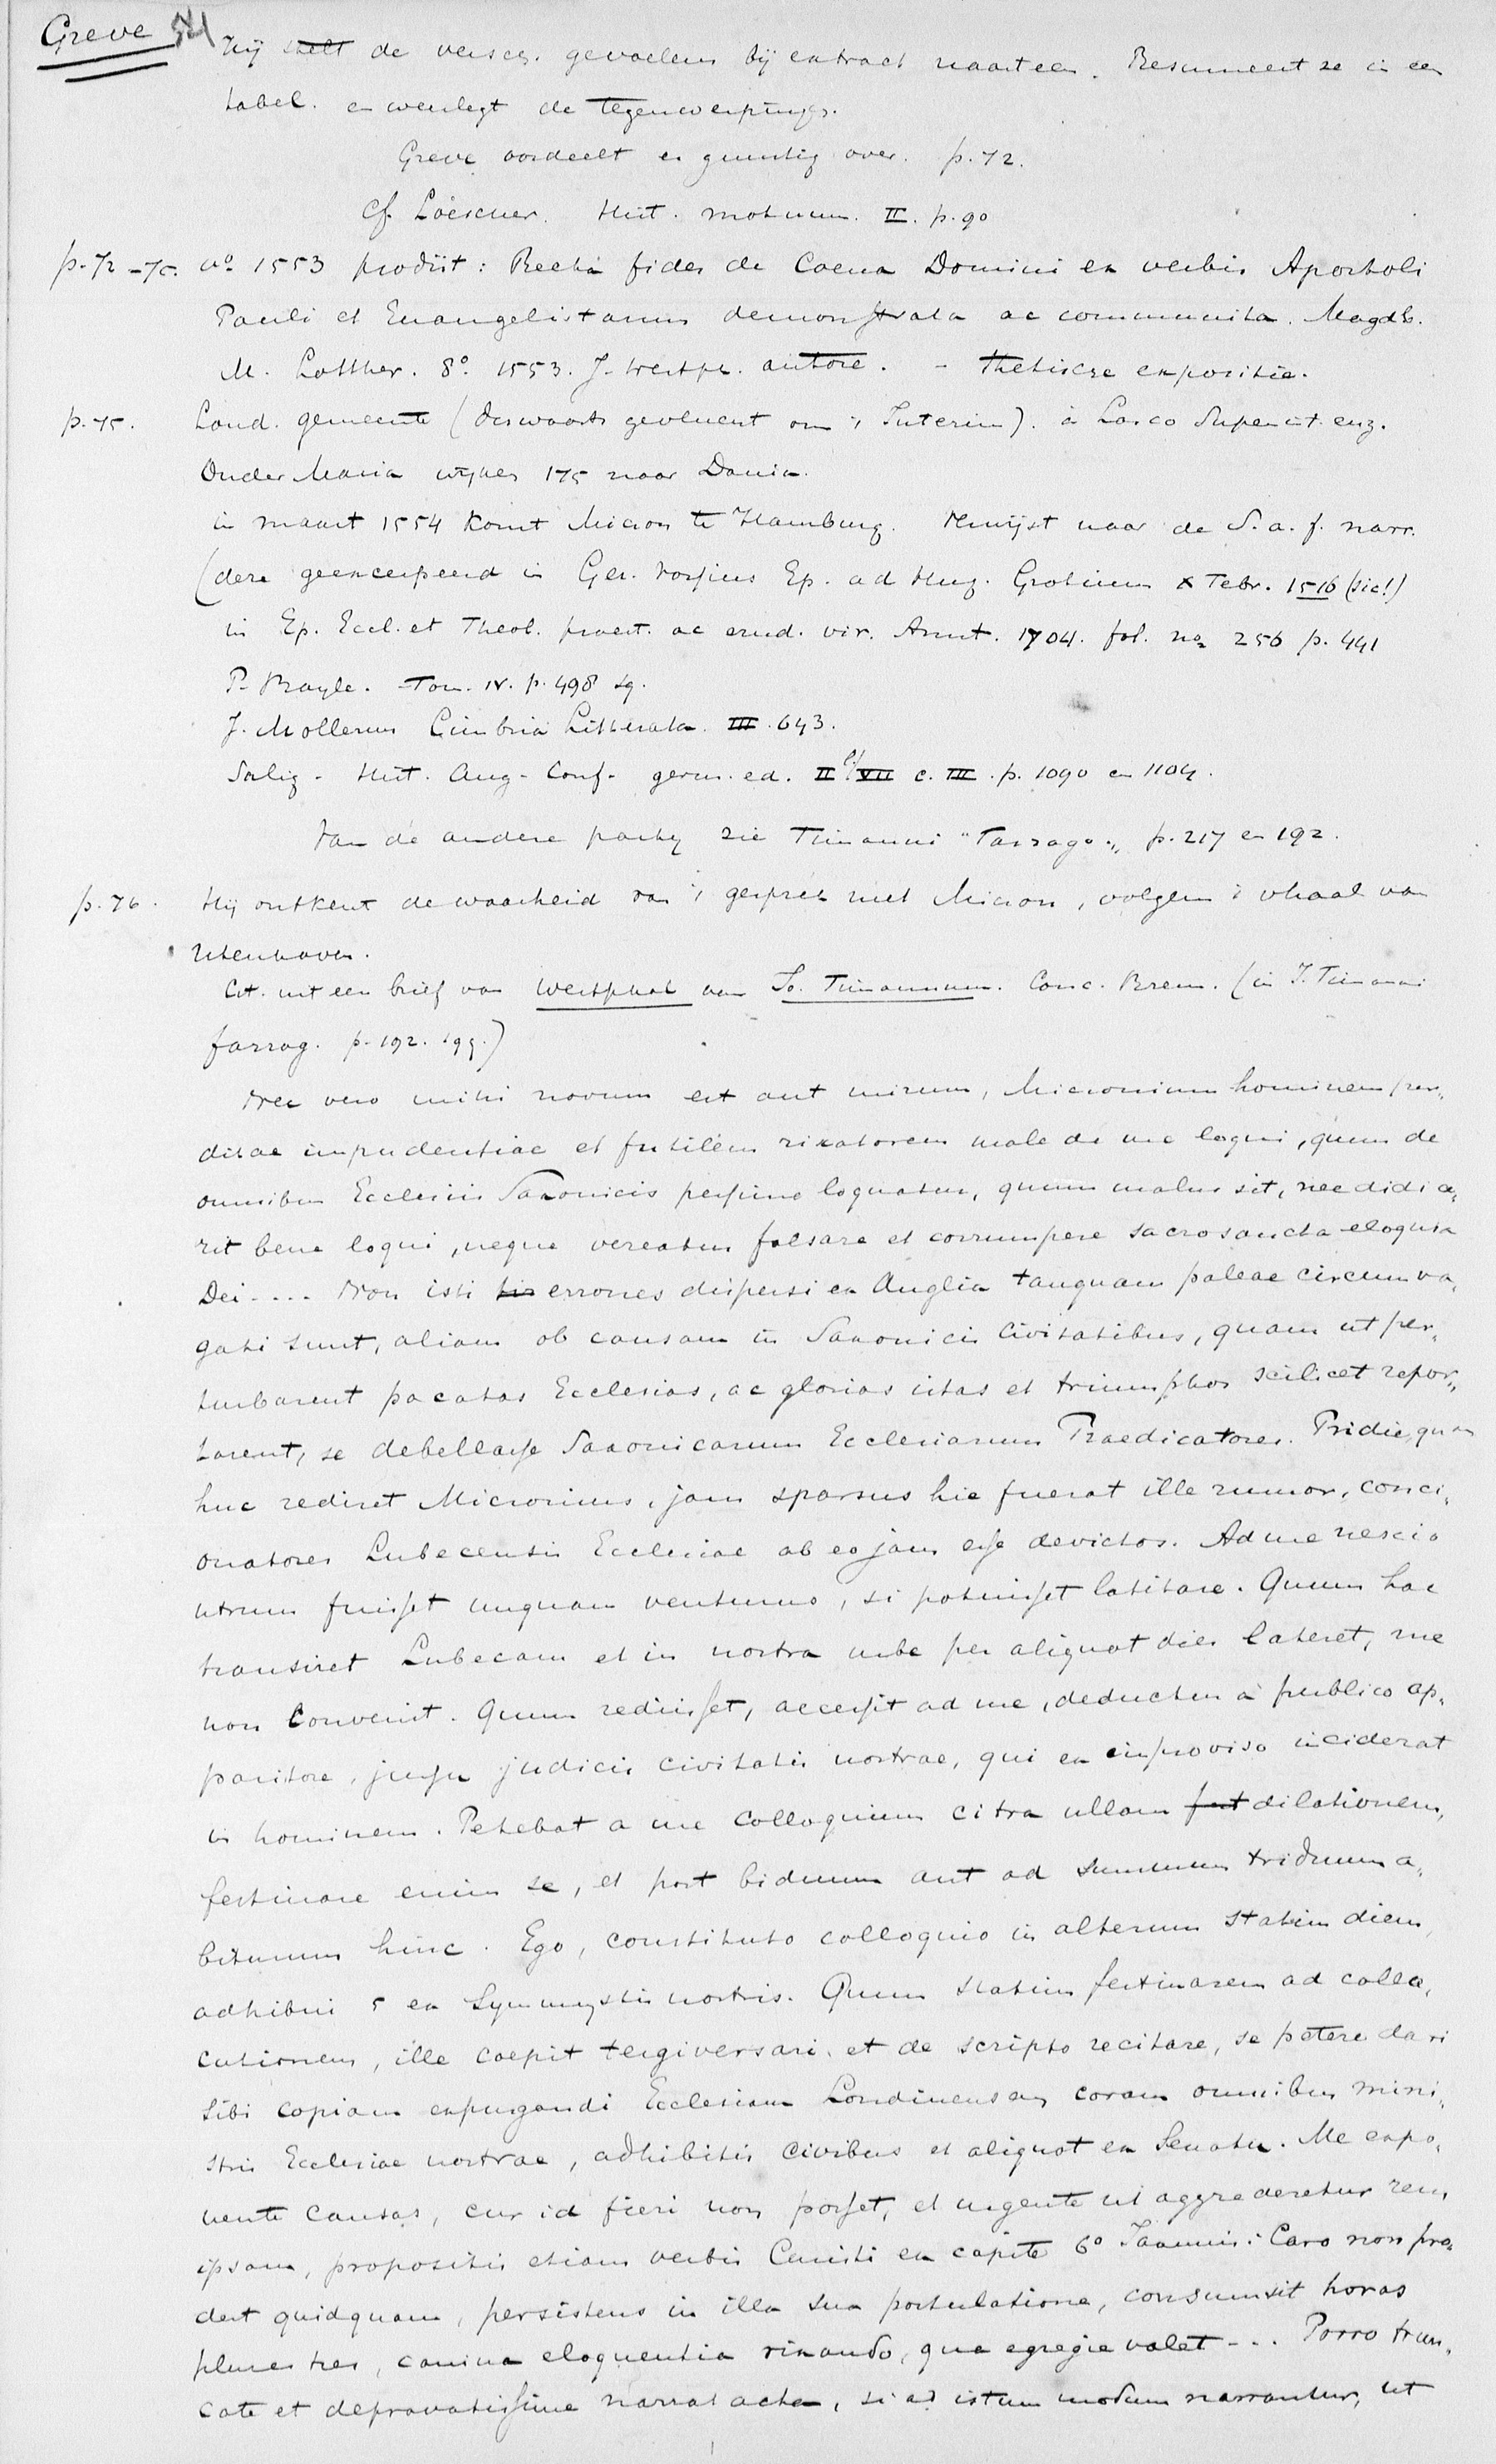 Greve 54
Hij stelt de versch. gevoelens bij extract naarteen. Resumeert ze in een
tabel. en weerlegt de tegenwerpings.
Greve oordeelt er gunstig over. p. 72.
cf. Löescher. Hist. motuum. II. p. 90
p. 72 - 75. ao. 1553 prodiit: Recta fides de Coena Domini ex verbis Apostoli
Pauli et Evangelistarum demonstrata ac communita. Magdb.
M. Lotther. 8o. 1553. J. Westph. autore. - Thetische expositie.
p. 75. Lond. gemeente (derwaarts gevlucht om 't Interim). à Lasco Superint. enz.
Onder Maria wijken 175 naar Dania.
in maart 1554 komt Micron te Hamburg. Verwijst naar de S. a. f. narr.
(dere geexcerpeerd in Ger. Vossius Ep. ad Hug. Grotium X Febr. 1516 (sic!)
in Ep. Eccl. et Theol. praest. ac erud. vir. Amst. 1704. fol. no 256 p. 441
P. Bayle. Tom. IV. p. 498 sq.
J. Mollerus Cimbria Litterata. III. 643.
Salig - Hist. Aug. Conf. germ. ed. II l/VII c. III. p. 1090 en 1104.
Van de andere party zie Timanni "Farrago„ p. 217 en 192.
p. 76. Hij ontkent de waarheid van 't gesprek met Micron, volgens 't vhaal van
Utenhoven.
Cit. uit een brief van Westphal aan Jo. Timannum. Conc. Brem. (in J. Timanni
farrag. p. 192. sqq.)
Nec vero mihi novum est aut mirum, Micronium hominem per„
ditae impudentiae et futilem rixatorem male de me loqui, quum de
omnibus Ecclesiis Saxonicis pessime loquatur, quum malus sit, nec didice„
rit bene loqui, neque vereatur falsare et corrumpere sacrosancta eloquia
Dei .... Non isti his errones dispersi ex Anglia tanquam paleae circumva„
gati sunt, aliam ob causam in Saxonicis Civitatibus, quam ut per„
turbarent pacatas Ecclesias, ac glorias istas et triumphos scilicet repor„
tarent, se debellasse Saxonicarum Ecclesiarum Praedicatores. Pridie, quam
huc rediret Micronius, jam sparsus hic fuerat ille rumor, conci„
onatores Lubecensis Ecclesiae ab eo jam esse devictos. Ad me nescio
utrum fuisset unquam venturus, si potuisset latitare. Quum hac
transiret Lubecam et in nostra urbe per aliquot dies lateret, me
non Convenit. Quum rediisset, accessit ad me, deductus a publico ap„
paritore, jussu judicis civitatis nostrae, qui ex improviso inciderat
in hominem. Petebat a me Colloquium citra ullam fut dilationem,
festinare enim se, et post biduum aut ad summum triduum a„
biturum hinc. Ego, constituto colloquio in alterum statim diem,
adhibui 5 ex Symmystis nostris. Quum statim festinarem ad collo„
cutionem, ille coepit tergiversari, et de scripto recitare, se petere dari
sibi copiam expurgandi Ecclesiam Londinensem coram omnibus mini„
stris Ecclesiae nostrae, adhibitis Civibus et aliquot ex Senatu. Me expo„
nente Causas, cur id fieri non posset, et urgente ut aggrederetur rem
ipsam, propositis etiam verbis Christi ex capite 6o Joannis: Caro non pro„
dest quidquam, persistens in illa sua postulatione, consumsit horas
plures tres, canina eloquentia rixando, qua egregie valet ... Porro trun„
cate et depravatissime narrat acta, si ad istum modum narrantur, ut